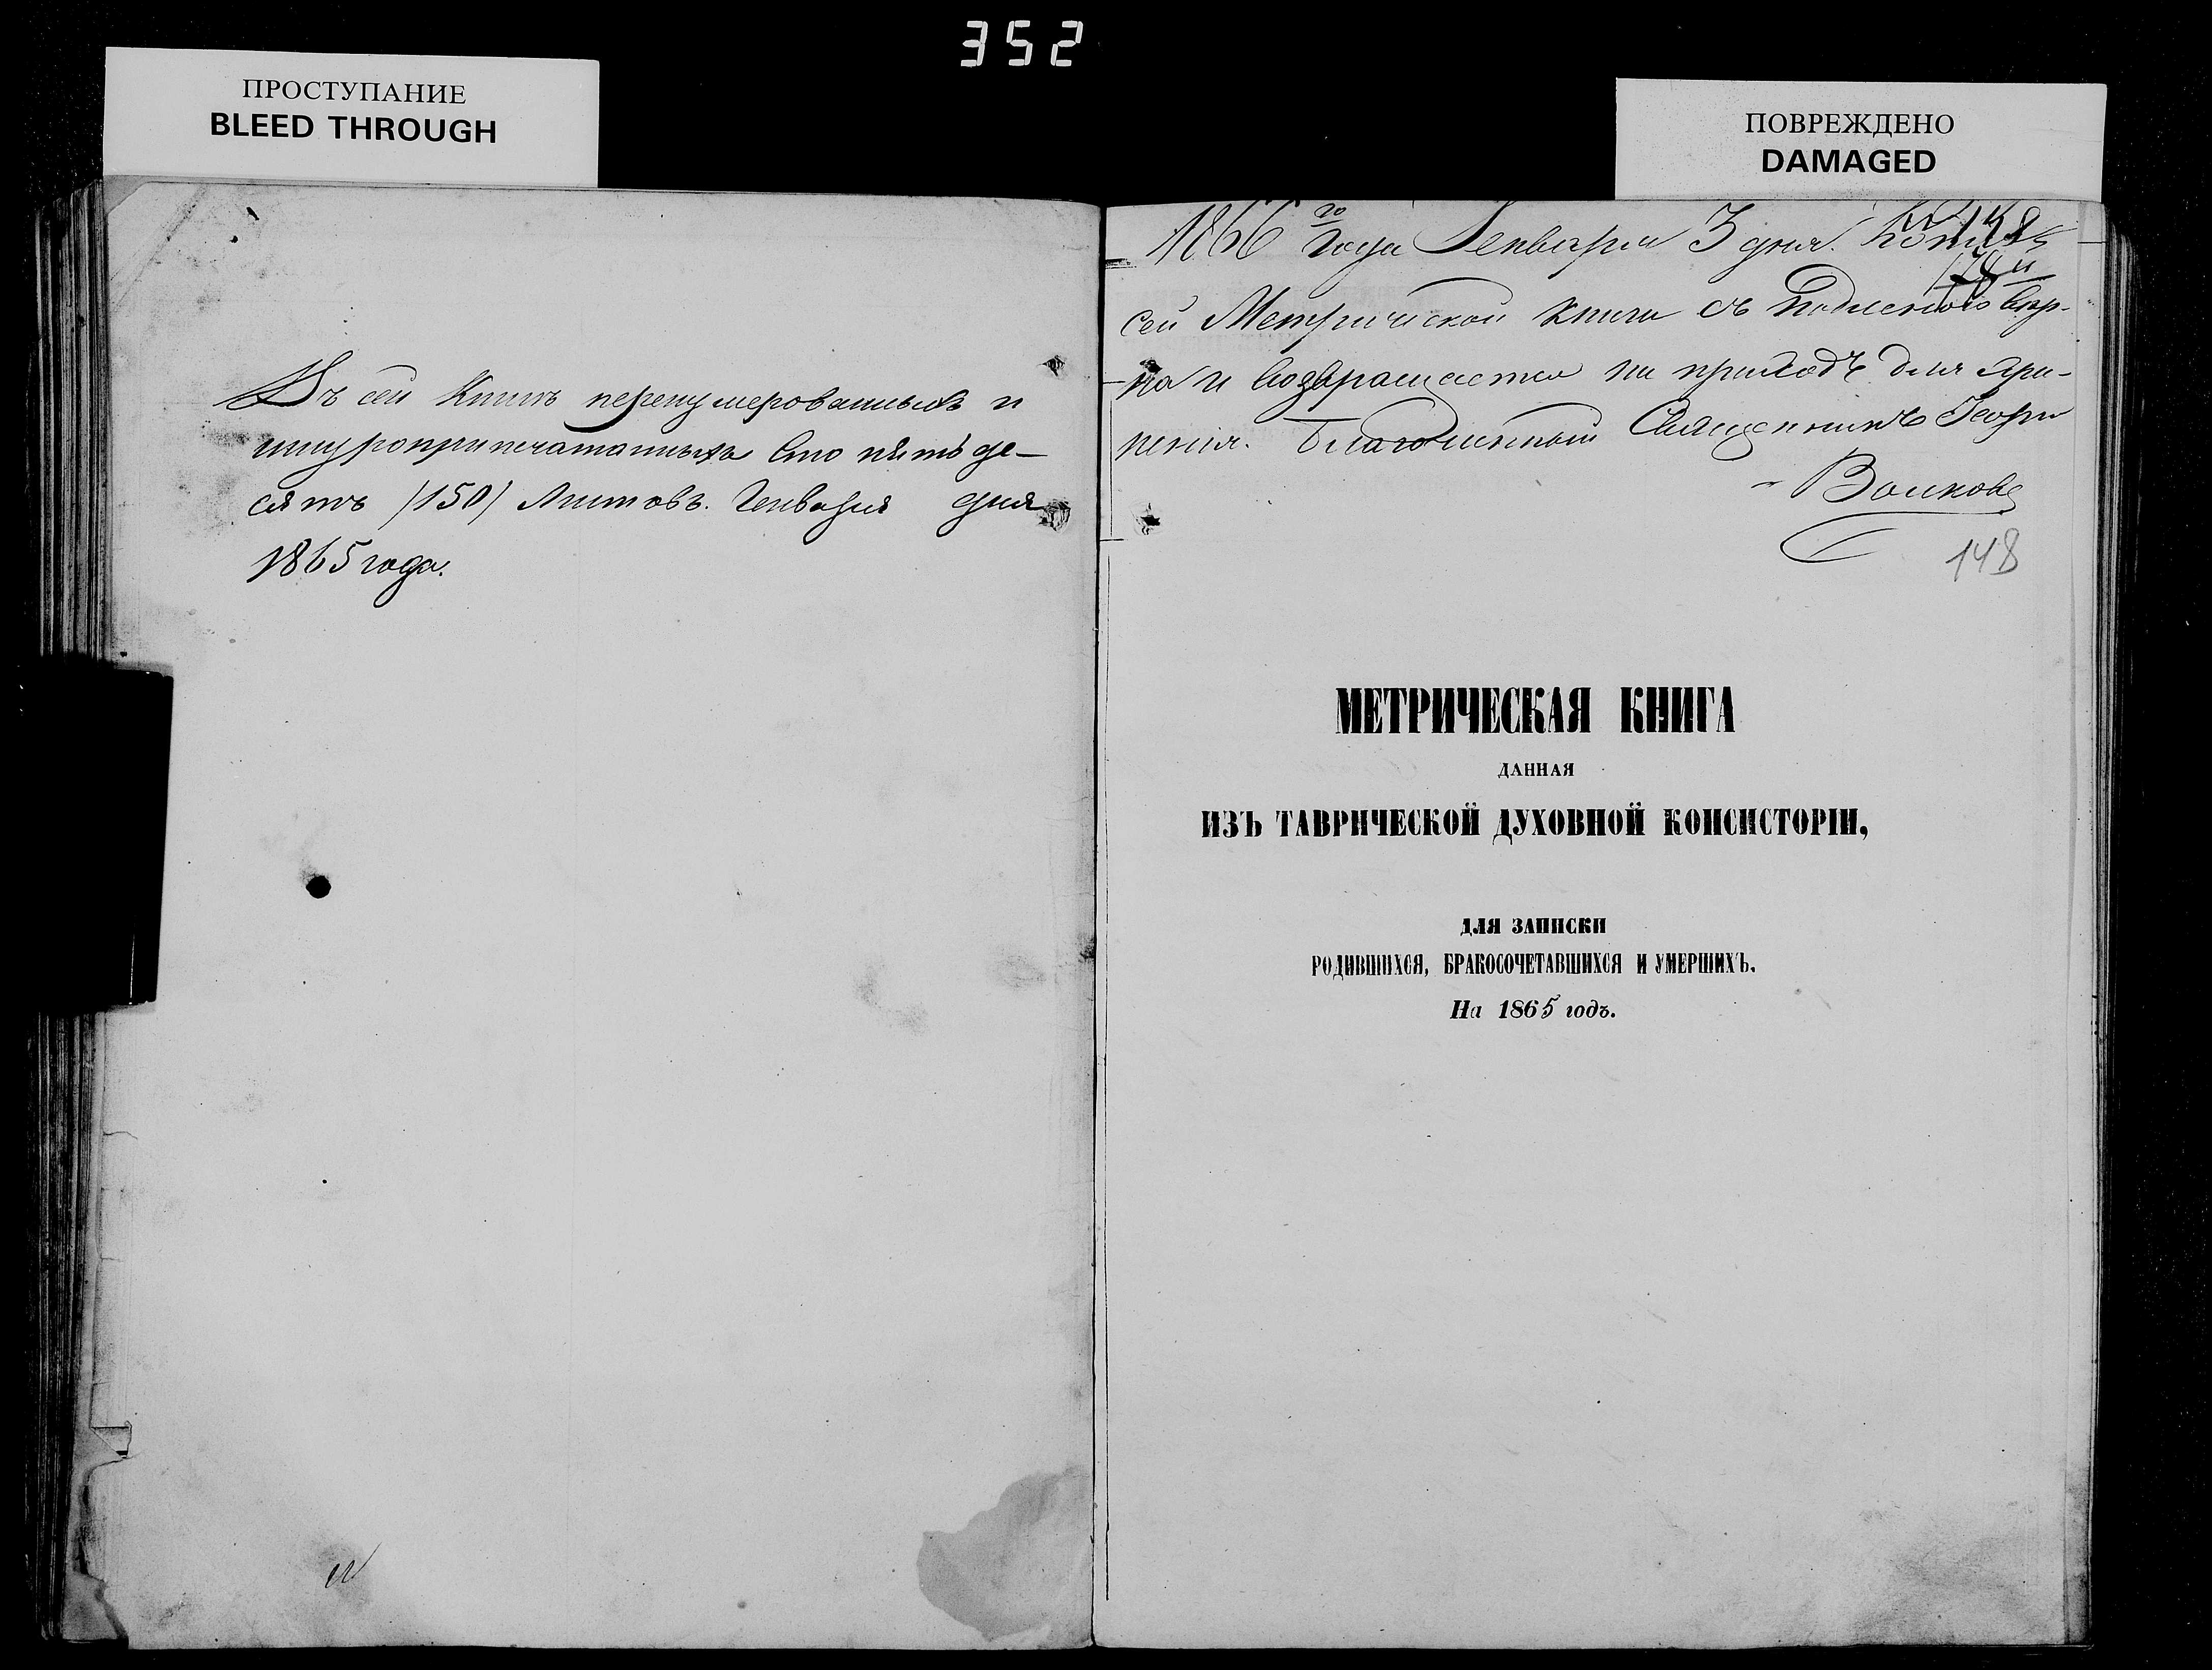 352
ПРОСТУПАНИЕ
BLEED THROUGH
ПОВРЕЖДЕНО
DAMAGED
Въ сей Книгѣ перенумерованныхъ и
шнуроприпечатанныхъ сто пятьде-
сятъ /150/ листовъ. Генваря дня
1865 года.
1866 го года Генваря 3 дня. Копія съ
148
сей Метрической книги съ подлинною вѣр-
на и возвращается на приходъ для хра-
ненія. Благочинный Священникъ Георгій
Волковъ
148
МЕТРИЧЕСКАЯ КНИГА
ДАННАЯ
ИЗЪ ТАВРИЧЕСКОЙ ДУХОВНОЙ КОНСИСТОРІИ,
ДЛЯ ЗАПИСКИ
РОДИВШИХСЯ, БРАКОСОЧЕТАВШИХСЯ И УМЕРШИХЪ.
На 1865 годъ.